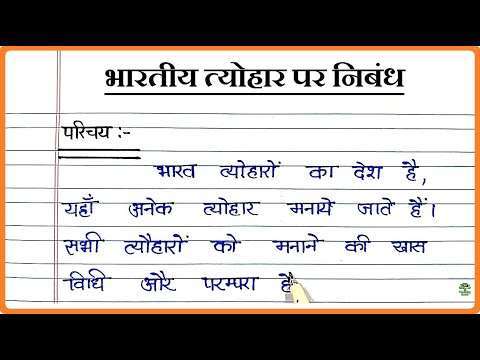 भारतीय त्योहार पर निबंध
परिचय :-
भारत त्योहारों का देश है,
यहाँ अनेक त्योहार मनाये जाते हैं।
सभी त्यौहारों को मनाने की खास
विधि और परम्परा है